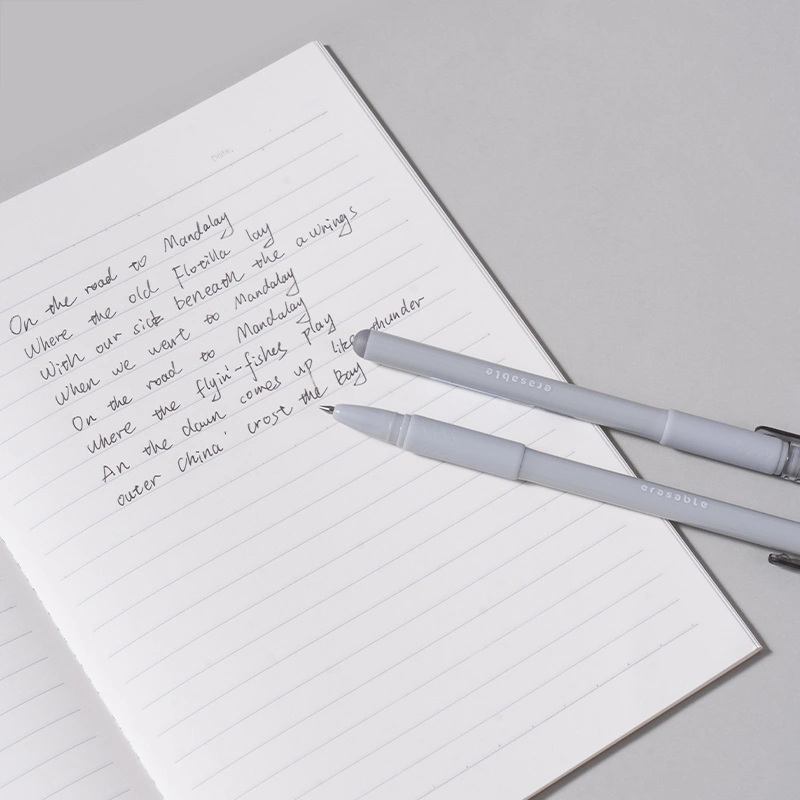 DATE.
On the road to Mandalay
Where the old Flotilla lay
With our sick beneath the awnings
When we went to Mandalay
On the road to Mandalay
where the flyin'-fishes play
An the dawn comes up like thunder
outer China' crost the Bay
erasable
erasable